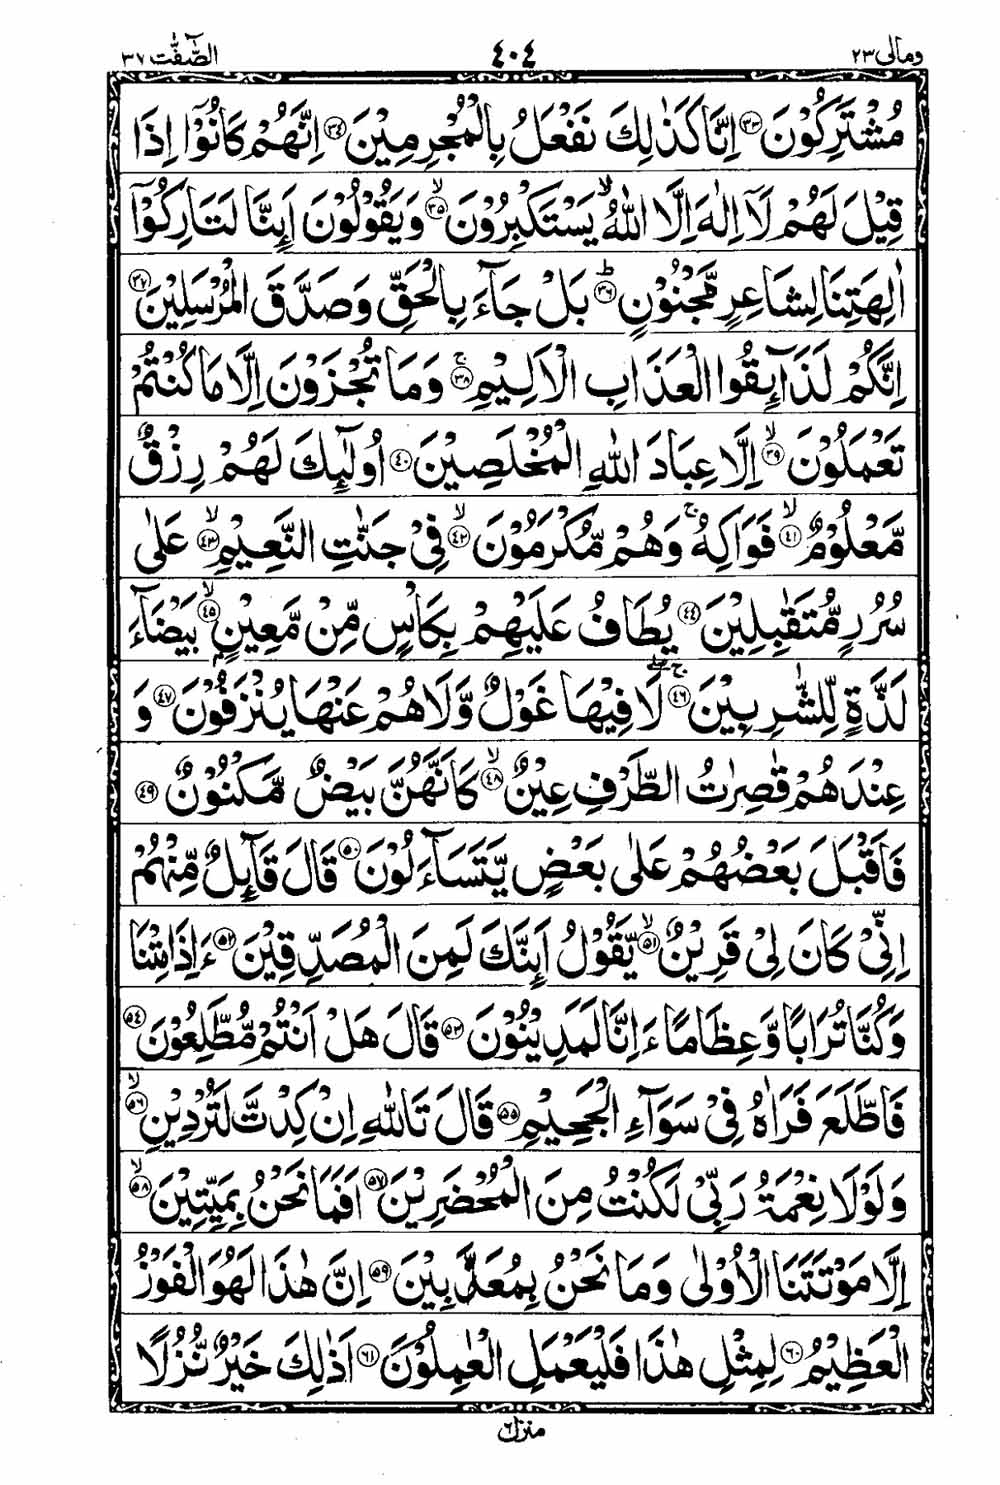 ومالی ۲۳
٤٠٤
الصّٰٓفّٰت ۳۷
مُشْتَرِكُوْنَ ۝۳۳ اِنَّا كَذٰلِكَ نَفْعَلُ بِالْمُجْرِمِيْنَ ۝۳۴ اِنَّهُمْ كَانُوْٓا اِذَا
قِيْلَ لَهُمْ لَآ اِلٰهَ اِلَّا اللّٰهُ ۙ يَسْتَكْبِرُوْنَ ۝۳۵ۙ وَيَقُوْلُوْنَ اَىِٕنَّا لَتَارِكُوْٓا
اٰلِهَتِنَا لِشَاعِرٍ مَّجْنُوْنٍ ۝۳۶ؕ بَلْ جَآءَ بِالْحَقِّ وَصَدَّقَ الْمُرْسَلِيْنَ ۝۳۷
اِنَّكُمْ لَذَآىِٕقُوا الْعَذَابِ الْاَلِيْمِ ۝۳۸ۚ وَمَا تُجْزَوْنَ اِلَّا مَا كُنْتُمْ
تَعْمَلُوْنَ ۝۳۹ۙ اِلَّا عِبَادَ اللّٰهِ الْمُخْلَصِيْنَ ۝۴۰ اُولٰٓىِٕكَ لَهُمْ رِزْقٌ
مَّعْلُوْمٌ ۝۴۱ۙ فَوَاكِهُ ۚ وَهُمْ مُّكْرَمُوْنَ ۝۴۲ۙ فِىْ جَنّٰتِ النَّعِيْمِ ۝۴۳ۙ عَلٰى
سُرُرٍ مُّتَقٰبِلِيْنَ ۝۴۴ يُطَافُ عَلَيْهِمْ بِكَاْسٍ مِّنْ مَّعِيْنٍۭ ۝۴۵ۙ بَيْضَآءَ
لَذَّةٍ لِّلشّٰرِبِيْنَ ۝۴۶ۚۖ لَا فِيْهَا غَوْلٌ وَّلَا هُمْ عَنْهَا يُنْزَفُوْنَ ۝۴۷ وَ
عِنْدَهُمْ قٰصِرٰتُ الطَّرْفِ عِيْنٌ ۝۴۸ۙ كَاَنَّهُنَّ بَيْضٌ مَّكْنُوْنٌ ۝۴۹
فَاَقْبَلَ بَعْضُهُمْ عَلٰى بَعْضٍ يَّتَسَآءَلُوْنَ ۝۵۰ قَالَ قَآىِٕلٌ مِّنْهُمْ
اِنِّىْ كَانَ لِىْ قَرِيْنٌ ۝۵۱ۙ يَّقُوْلُ اَىِٕنَّكَ لَمِنَ الْمُصَدِّقِيْنَ ۝۵۲ ءَاِذَا مِتْنَا
وَكُنَّا تُرَابًا وَّعِظَامًا ءَاِنَّا لَمَدِيْنُوْنَ ۝۵۳ قَالَ هَلْ اَنْتُمْ مُّطَّلِعُوْنَ ۝۵۴
فَاطَّلَعَ فَرَاٰهُ فِىْ سَوَآءِ الْجَحِيْمِ ۝۵۵ قَالَ تَاللّٰهِ اِنْ كِدْتَّ لَتُرْدِيْنِ ۝۵۶ۙ
وَلَوْلَا نِعْمَةُ رَبِّىْ لَكُنْتُ مِنَ الْمُحْضَرِيْنَ ۝۵۷ اَفَمَا نَحْنُ بِمَيِّتِيْنَ ۝۵۸ۙ
اِلَّا مَوْتَتَنَا الْاُوْلٰى وَمَا نَحْنُ بِمُعَذَّبِيْنَ ۝۵۹ اِنَّ هٰذَا لَهُوَ الْفَوْزُ
الْعَظِيْمُ ۝۶۰ لِمِثْلِ هٰذَا فَلْيَعْمَلِ الْعٰمِلُوْنَ ۝۶۱ اَذٰلِكَ خَيْرٌ نُّزُلًا
منزل ٦